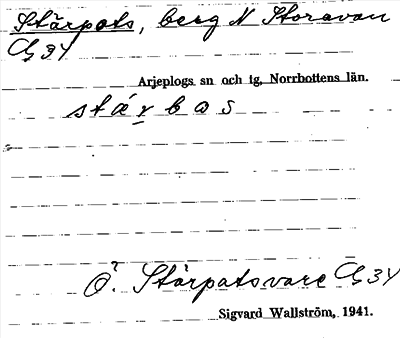 Stärpats, berg N Storavan
G 34
Arjeplogs sn och tg, Norrbottens län.
stárbas
Ö. Stärpatsvare G 34
Sigvard Wallström, 1941.